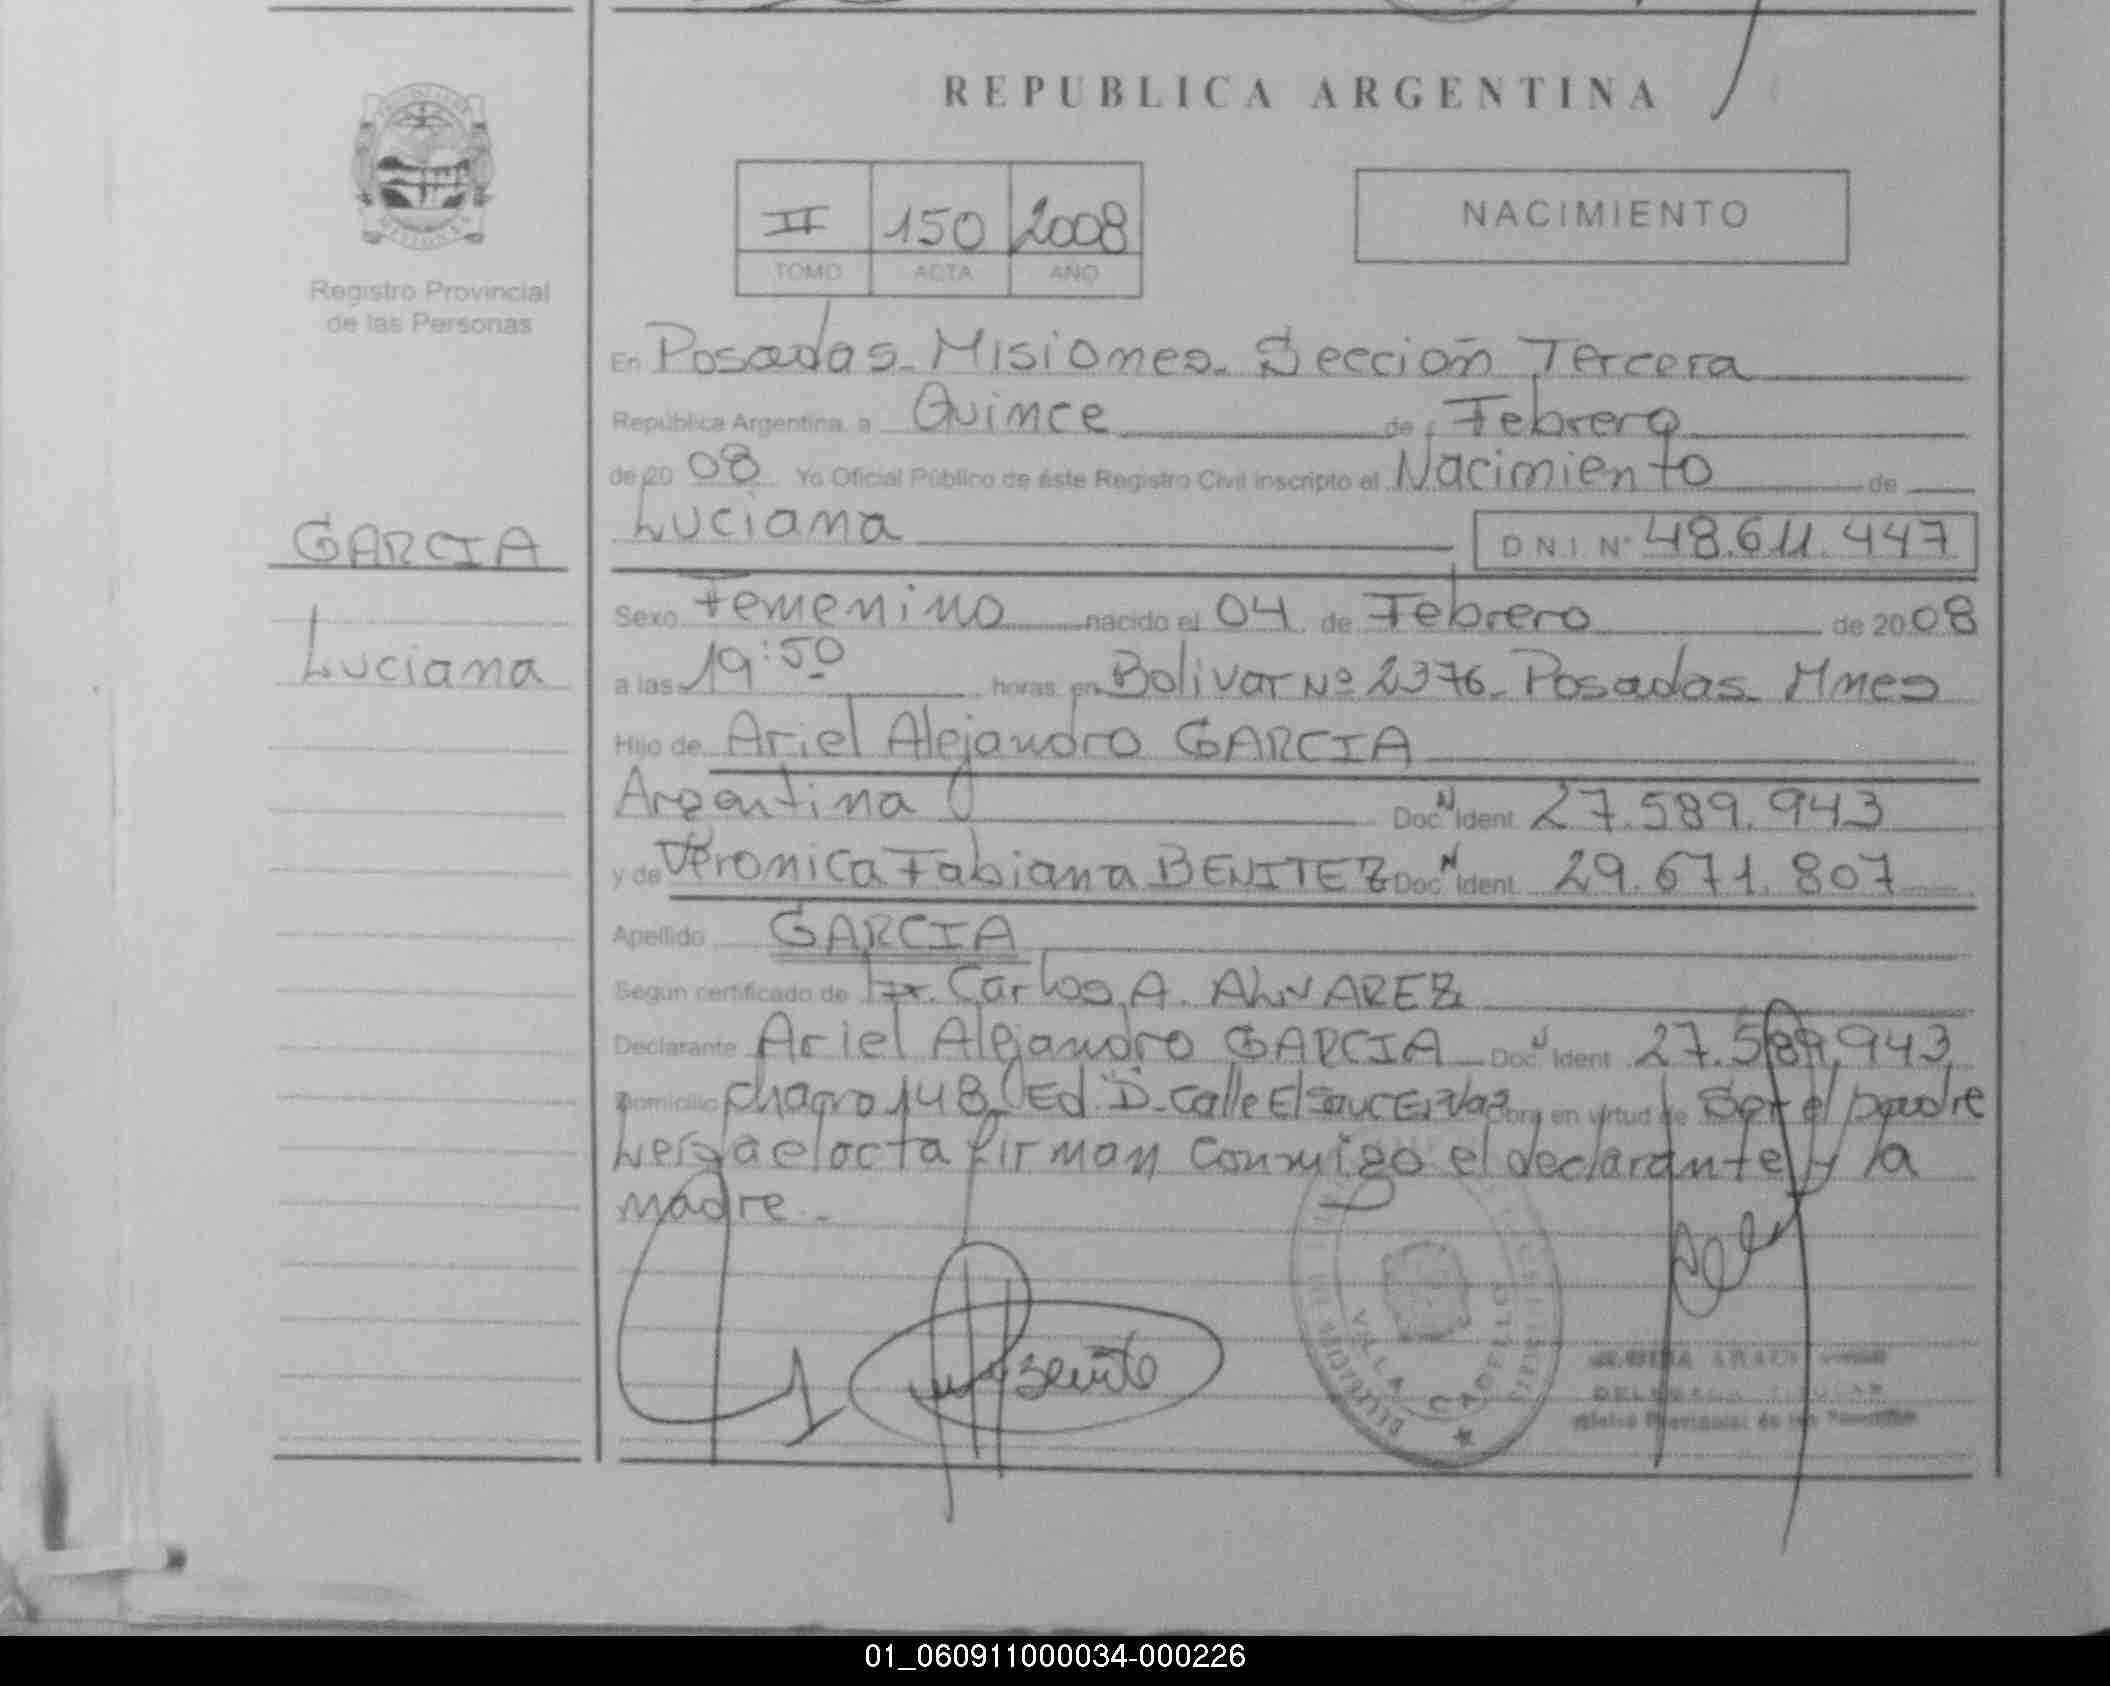 REPUBLICA ARGENTINA
II 150 2008
TOMO ACTA AÑO
NACIMIENTO
Registro Provincial
de las Personas
En Posadas - Misiones - Sección Tercera
República Argentina, a Quince de Febrero
de 20 08 Yo Oficial Público de éste Registro Civil inscripto el Nacimiento de
Luciana D N I Nº 48.611.447
GARCIA
Luciana
Sexo Femenino nacido el 04 de Febrero de 20 08
a las 19:50 horas en Bolivar Nº 2376 - Posadas - Mnes
Hijo de Ariel Alejandro GARCIA
Argentina Doc. N Ident. 27.589.943
y de Veronica Fabiana BENITEZ Doc. N Ident. 29.671.807
Apellido GARCIA
Según certificado de Dr. Carlos A. ALVAREZ
Declarante Ariel Alejandro GARCIA Doc. N Ident. 27.589.943
Domicilio 148 Ed. D - Calle El obra en virtud de Ser el padre
Leida el acta firman conmigo el declarante y la
madre -
Benite
VILLA CABELLO
DELEGADA TITULAR
Provincial de las Personas
01_060911000034-000226